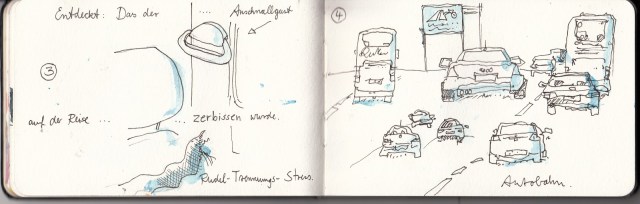 Entdeckt: Das der .... Anschnallgurt
③
auf der Reise ... ... zerbissen wurde.
Rudel-Trennungs-Stress.
④
Autobahn.